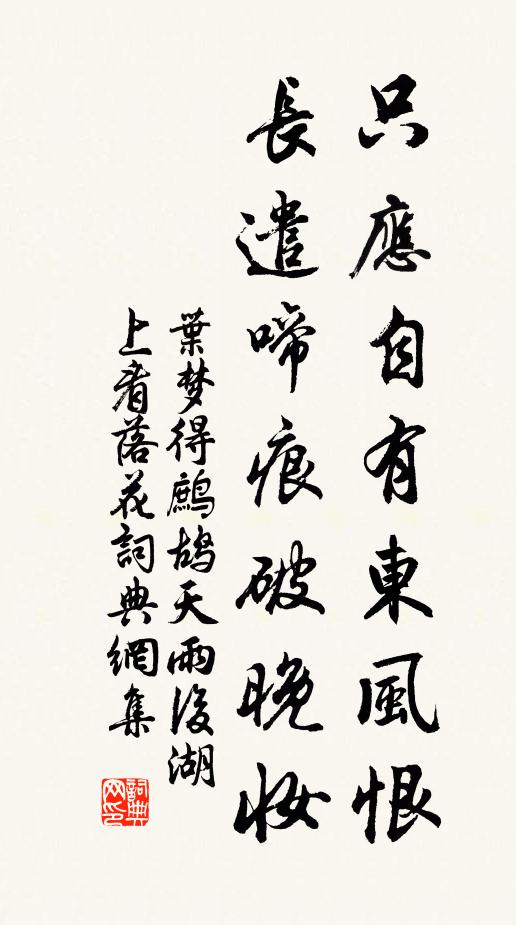 只應自有東風恨
長遣啼痕破晚妝
葉梦得鷓鴣天雨後湖
上看落花詞典網集
詞典网印